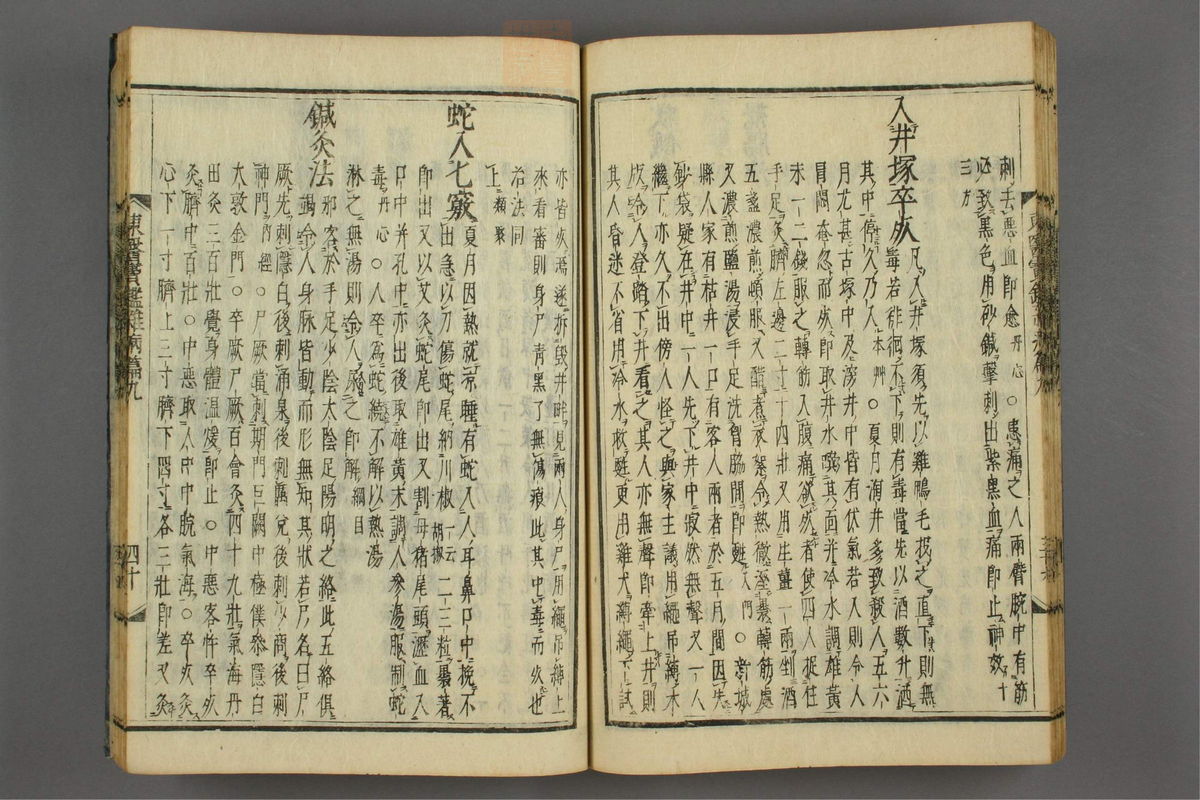 刺去惡血即愈丹心○患痛之人兩臂腕中有筋
必致黑色用砂鍼擊刺出紫黑血痛即止神效十
三方
入井塚卒死凡入井塚須先以雞鴨毛投之直下則無
毒若徘徊不下則有毒當先以酒數升洒
其中停久乃入本艸○夏月淘井多致殺人五六
月尤甚古塚中及深井中皆有伏氣若入則令人
冒悶奄忽而死即取井水噀其面并冷水調雄黃
末一二錢服之轉筋入腹痛欲死者使四人捉住
手足灸臍左邊二寸十四壯又用生薑一兩剉酒
五盞濃煎頓服又醋煮衣絮令熱徹溼裹轉筋處
又濃煎鹽湯浸手足洗胷脇間即甦入門○音城
縣人家有枯井一口有客人兩者於五月間因失
鈔袋疑在井中一人先下井中寂然無聲又一人
繼下亦不出傍人怪之與家主議用繩吊縛木
令人登踏下井看之其人亦無聲即牽上井則
其人昏迷不省用冷水救甦更用雞犬縛繩下試
亦皆死焉遂拆毀井畔見兩人身尸用繩吊縛上
來看審則身尸青黑了無傷痕此其中毒而死也
治法同
上類聚
蛇入七竅夏月因熱就凉睡有蛇入人耳鼻口中挽不
出急以刀傷蛇尾納川椒一云胡椒二三粒裹著
即出又以艾灸蛇尾即出又割母猪尾頭瀝血入
口中并孔中亦出後取雄黃末調人參湯服制蛇
毒丹心○人卒爲蛇繞不解以熱湯
淋之無湯則令人尿之即解綱目
鍼灸法邪客於手足少陰太陰足陽明之絡此五絡俱
竭令人身脉皆動而形無知其狀若尸名曰尸
厥先刺隱白後刺涌泉後刺厲兌後刺少商後刺
神門內經○尸厥當刺期門巨闕中極僕參隱白
大敦金門○卒厥尸厥百會灸四十九壯氣海丹
田灸三百壯覺身體溫煖即止○中惡客忤卒死
灸臍中百壯○中惡取人中中脘氣海○卒死灸
心下一寸臍上三寸臍下四寸各三壯即差又灸
東醫寶鑑雜病篇九
四十